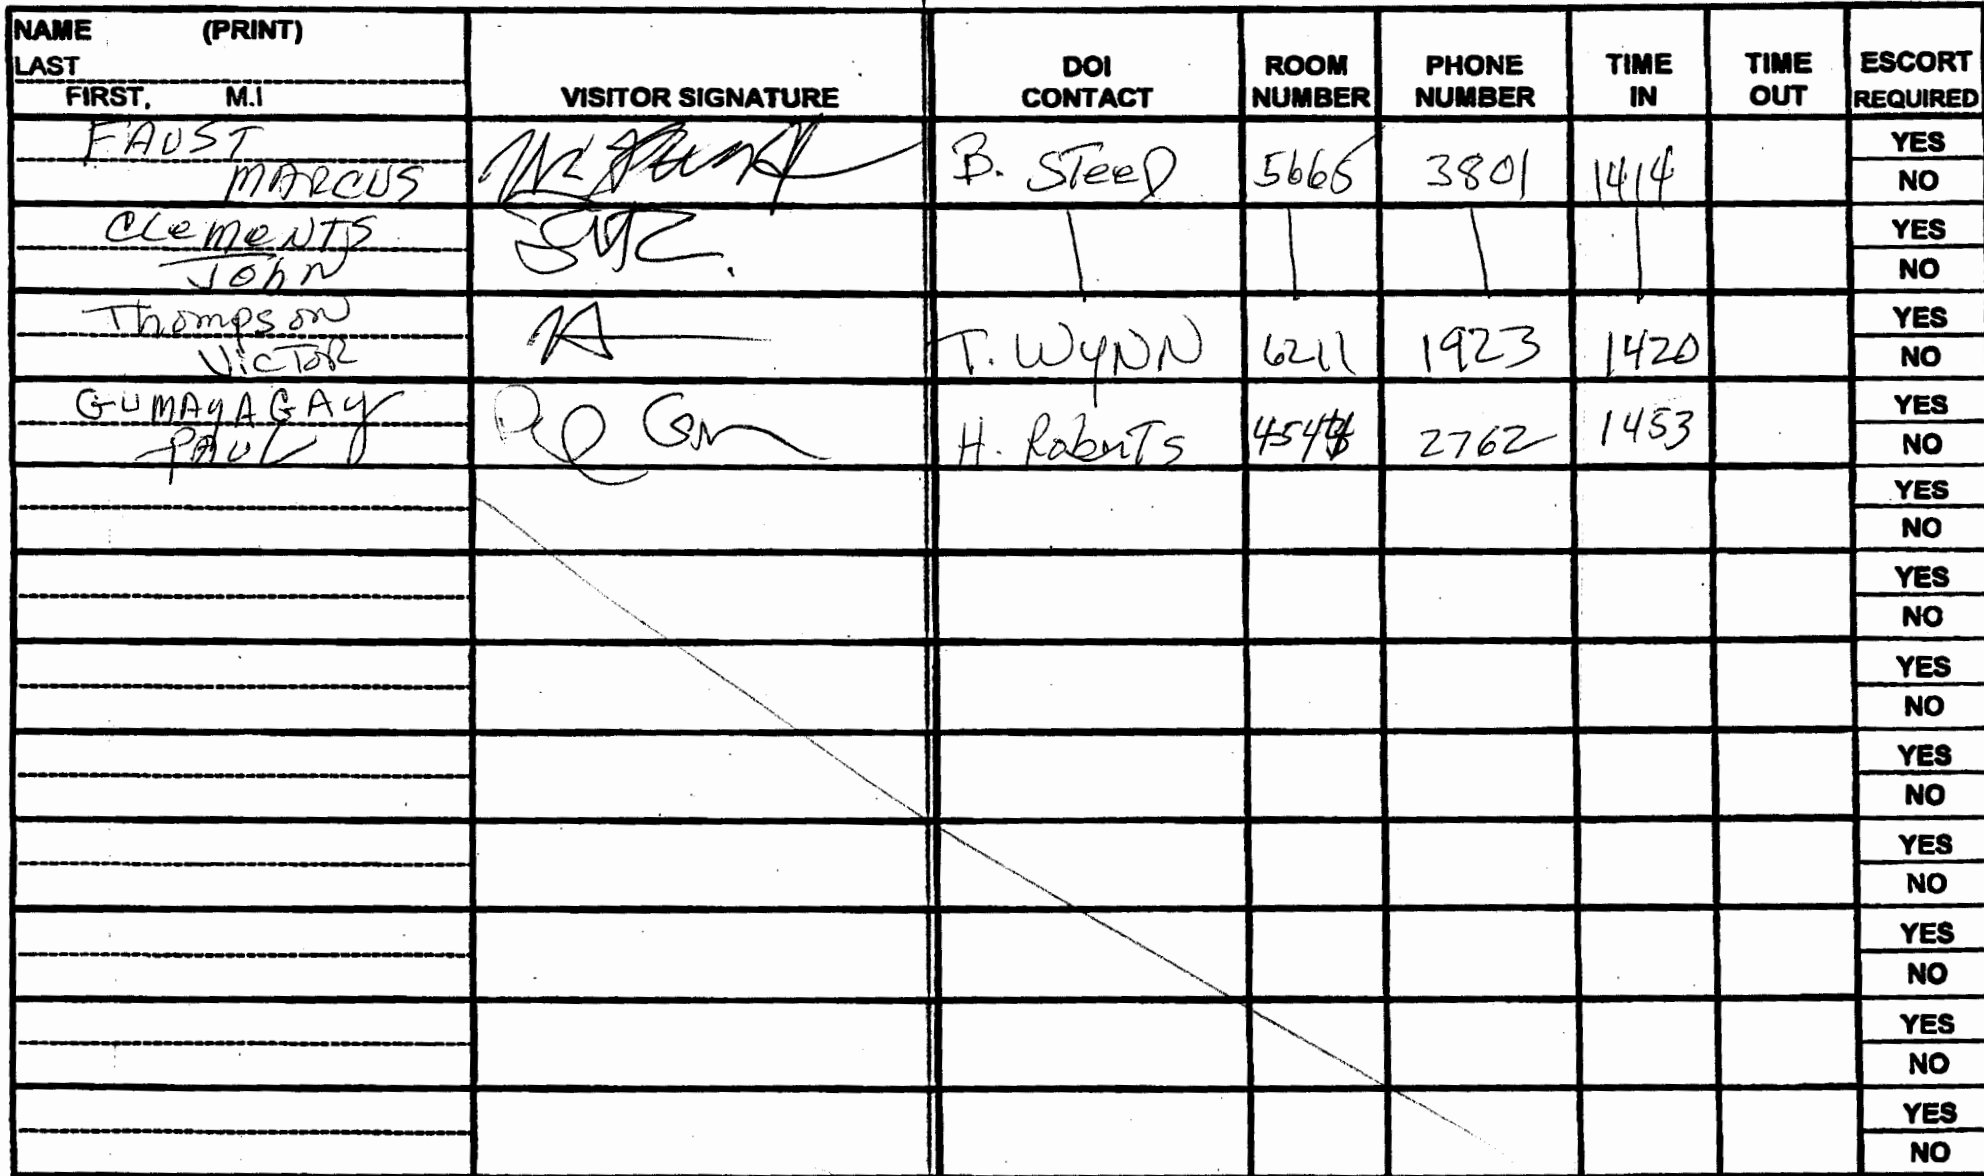 NAME (PRINT)
LAST
FIRST, M.I
VISITOR SIGNATURE
DOI CONTACT
ROOM NUMBER
PHONE NUMBER
TIME IN
TIME OUT
ESCORT REQUIRED
FAUST
MARCUS
B. STeeD 5665 3801 1414
YES
NO
CLemeNTS
John
YES
NO
Thompson
VICTOR
T. WYNN 6211 1923 1420
YES
NO
GUMAYAGAY
PAUL
H. RobertS 2762 1453
YES
NO
YES
NO
YES
NO
YES
NO
YES
NO
YES
NO
YES
NO
YES
NO
YES
NO